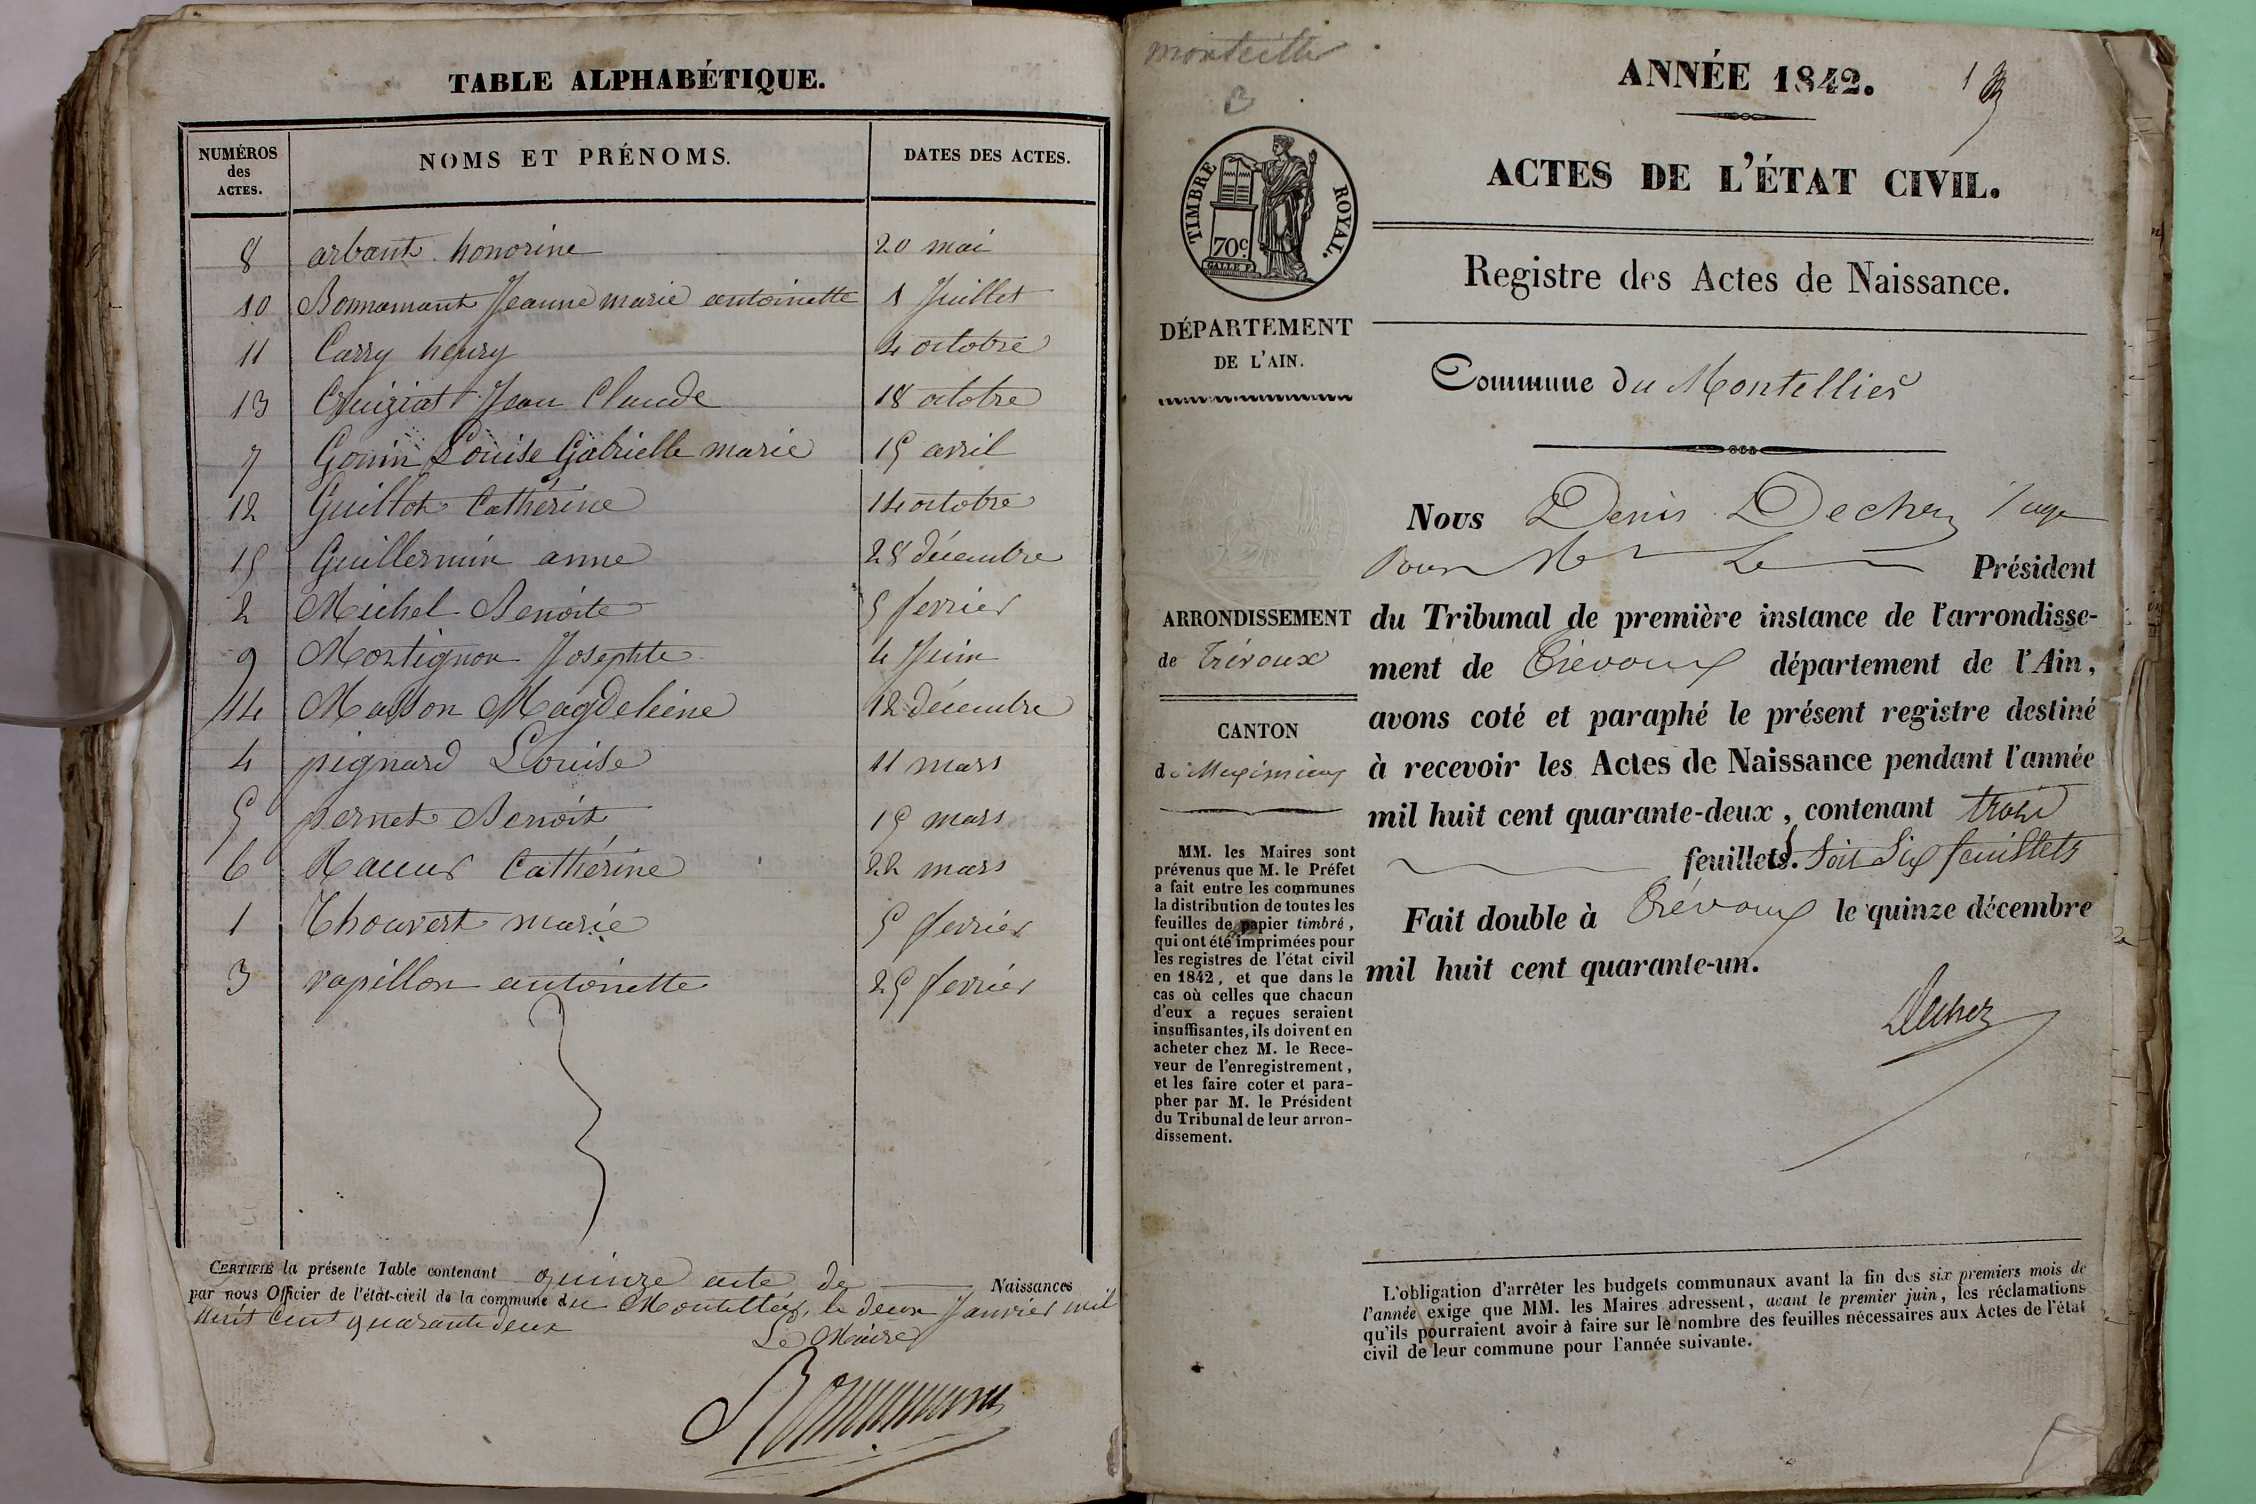 TABLE ALPHABÉTIQUE.
NUMÉROS des ACTES. NOMS ET PRÉNOMS. DATES DES ACTES.
8 arbant honorine 20 mai
10 Bonnamant Jeanne marie antoinette 1 Juillet
11 Carry henry 4 octobre
13 Cruiziat Jean Claude 18 octobre
7 Gonin Louise Gabrielle marie 15 avril
12 Guillot Catherine 14 octobre
15 Guillermin anne 28 décembre
2 Michel Benoite 5 ferrier
9 Montignon Josephte 4 Juin
14 Masson Magdeleine 12 décembre
4 pignard Louise 11 mars
5 pernet Benoit 15 mars
6 Catherine 22 mars
1 Thouvert marie 5 ferrier
3 vapillon antoinette 25 ferrier
CERTIFIÉ la présente Table contenant quinze acte de Naissances
par nous Officier de l'état-civil de la commune du Montellier, le deux Janvier mil
huit Cent quarante deux
Le Maire
montellier
ANNÉE 1842.
1
TIMBRE ROYAL.
70 c
ACTES DE L'ÉTAT CIVIL.
Registre des Actes de Naissance.
DÉPARTEMENT
DE L'AIN.
Commune du Montellier
Nous Denis Dechez Juge
Pour Mr Le Président
du Tribunal de première instance de l'arrondisse-
ment de Trévoux département de l'Ain,
avons coté et paraphé le présent registre destiné
à recevoir les Actes de Naissance pendant l'année
mil huit cent quarante-deux, contenant trois
feuillets. soit Six feuillets
Fait double à Trévoux le quinze décembre
mil huit cent quarante-un.
Dechez
ARRONDISSEMENT
de Trévoux
CANTON
de Meximieux
MM. les Maires sont
prévenus que M. le Préfet
a fait entre les communes
la distribution de toutes les
feuilles de papier timbré,
qui ont été imprimées pour
les registres de l'état civil
en 1842, et que dans le
cas où celles que chacun
d'eux a reçues seraient
insuffisantes, ils doivent en
acheter chez M. le Rece-
veur de l'enregistrement,
et les faire coter et para-
pher par M. le Président
du Tribunal de leur arron-
dissement.
L'obligation d'arrêter les budgets communaux avant la fin des six premiers mois de
l'année exige que MM. les Maires adressent, avant le premier juin, les réclamations
qu'ils pourraient avoir à faire sur le nombre des feuilles nécessaires aux Actes de l'état
civil de leur commune pour l'année suivante.